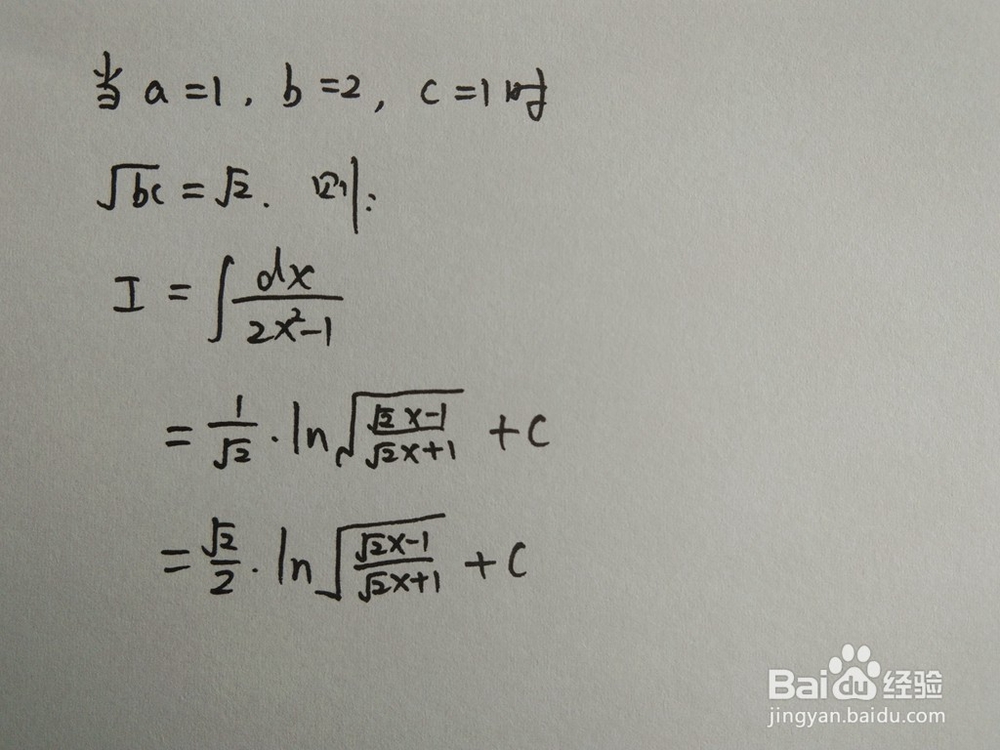 当 a=1, b=2, c=1时
√bc = √2. 则:
I = ∫ dx/(2x²-1)
= 1/√2 · ln √((√2x-1)/(√2x+1)) + C
= √2/2 · ln √((√2x-1)/(√2x+1)) + C
Baidu经验
jingyan.baidu.com